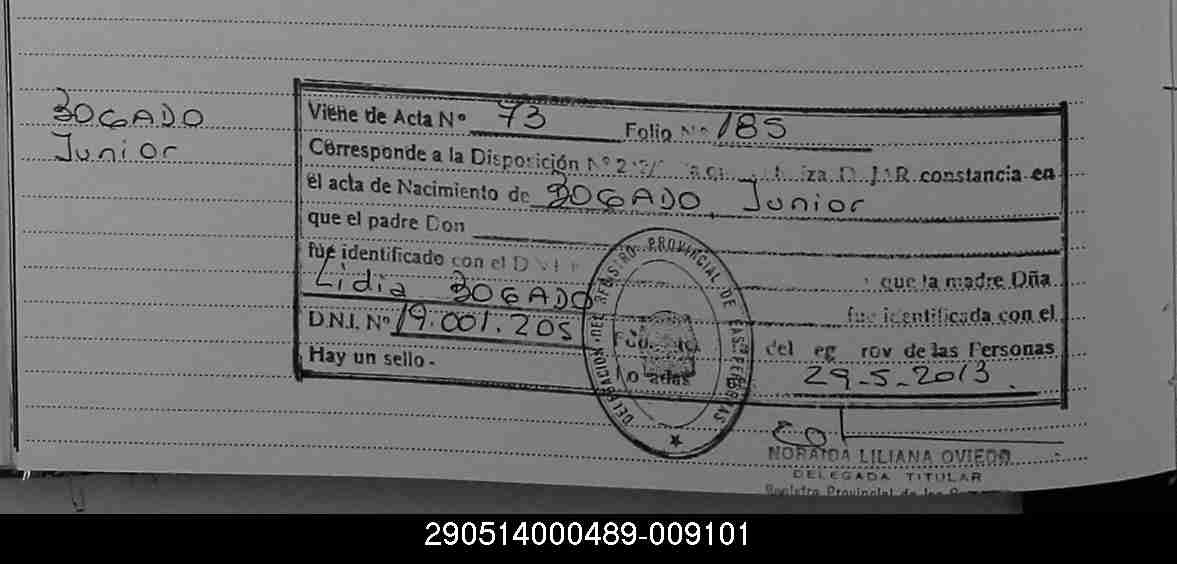 BOGADO
Junior
Viene de Acta Nº 73 Folio Nº 185
Corresponde a la Disposición Nº constancia en
el acta de Nacimiento de BOGADO, Junior
que el padre Don
fué identificado con el D.N.I. Nº
que la madre Dña
Lidia BOGADO
fue identificada con el
D.N.I. Nº 19.001.205
del rov de las Personas
Hay un sello -
29-5-2013.
DELEGACION DEL REGISTRO PROVINCIAL DE LAS PERSONAS
NORAIDA LILIANA OVIEDO
DELEGADA TITULAR
Registro Provincial de las
290514000489-009101